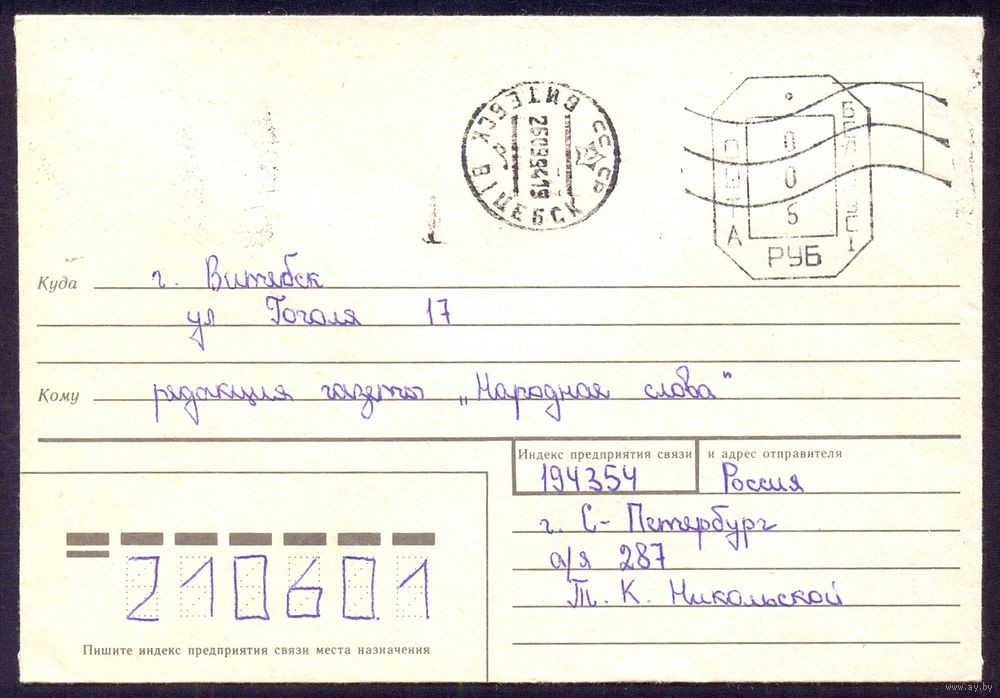 ВИТЕБСК СССР
26099419
ВІЦЕБСК
0
0
6
РУБ
Куда г. Витебск
ул Гоголя 17
Кому редакция газеты „Народная слова"
Индекс предприятия связи и адрес отправителя
194354 Россия
г. С-Петербург
а/я 287
Т. К. Никольской
210601
Пишите индекс предприятия связи места назначения
www.ay.by